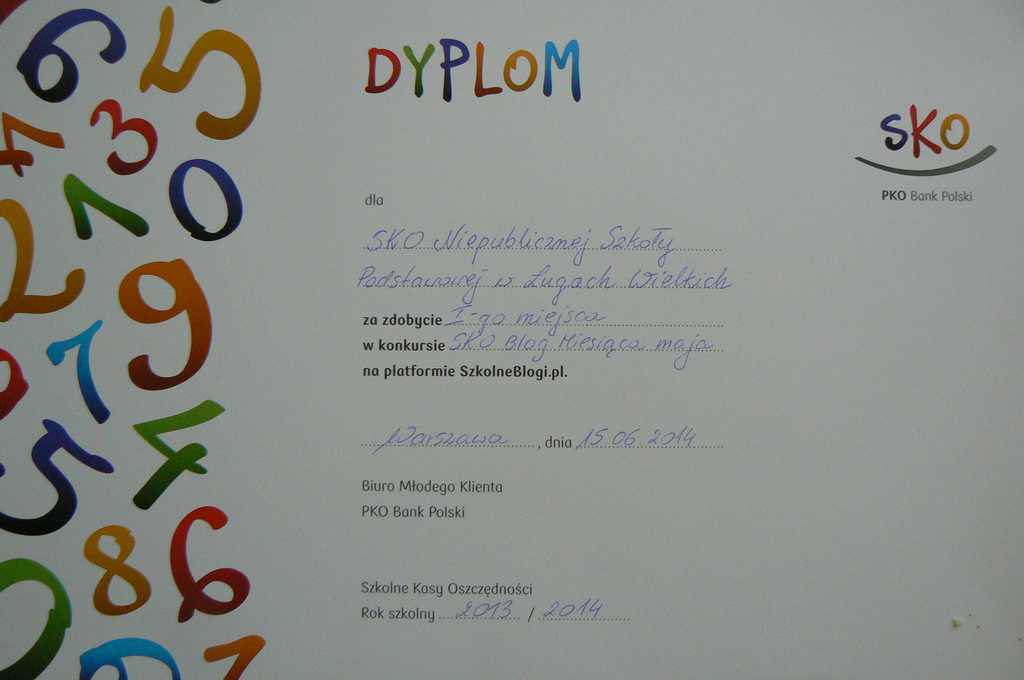 DYPLOM
SKO
PKO Bank Polski
dla
SKO Niepublicznej Szkoły
Podstawowej w Ługach Wielkich
za zdobycie I-go miejsca
w konkursie SKO Blog Miesiąca maja
na platformie SzkolneBlogi.pl.
Warszawa, dnia 15.06.2014
Biuro Młodego Klienta
PKO Bank Polski
Szkolne Kasy Oszczędności
Rok szkolny 2013 / 2014